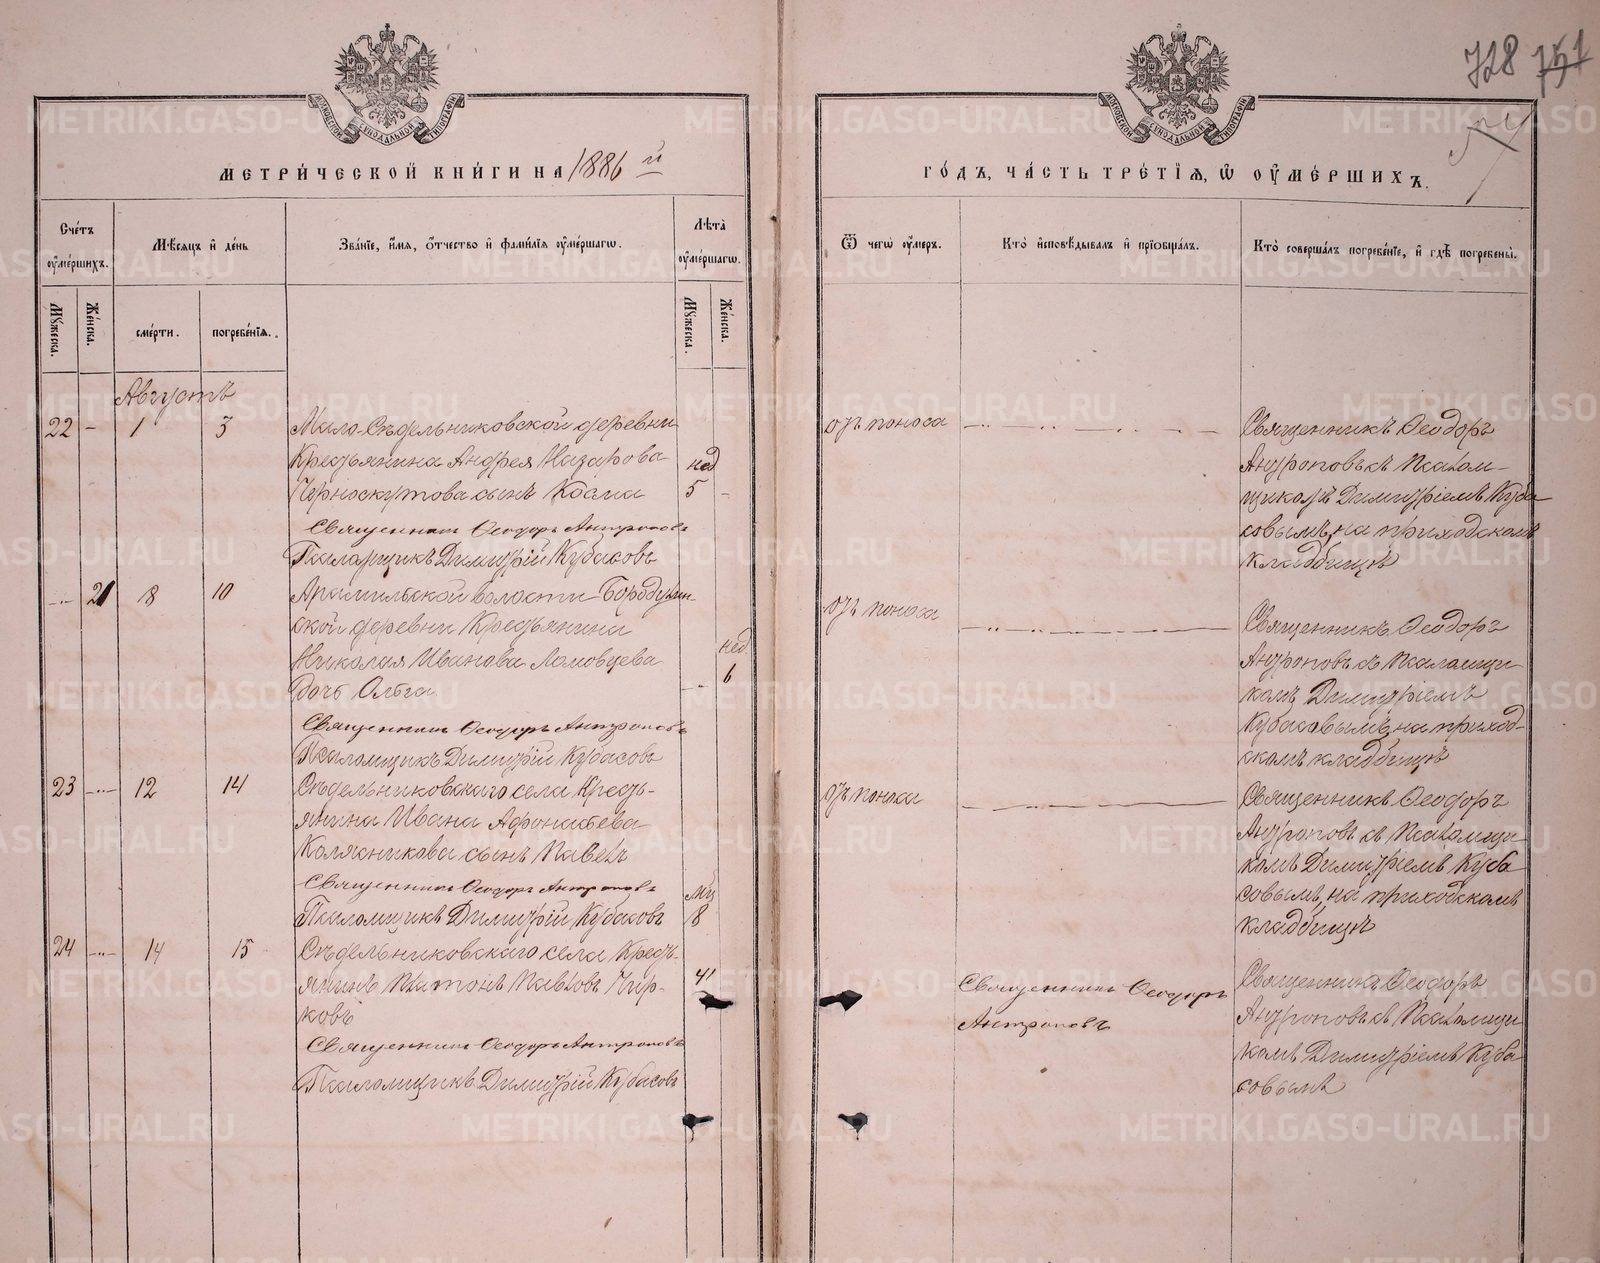 728 751
МЕТРИ́ЧЕСКОЙ КНИ́ГИ НА 1886 й
ГО́ДЪ, ЧА́СТЬ ТРЕ́ТІѦ, Ѿ ОУ҆МЕ́РШИХЪ.
МОСКОВСКОЙ СѴНОДАЛЬНОЙ ТИПОГРАФІИ
МОСКОВСКОЙ СѴНОДАЛЬНОЙ ТИПОГРАФІИ
Сче́тъ оу҆ме́ршихъ.
Мѣ́сѧцъ и҆ де́нь
Зва́нїе, и҆́мѧ, ѻ҆́тчество и҆ фами́лїѧ оу҆ме́ршагѡ.
Лѣ́та оу҆ме́ршагѡ.
Ѿ чегѡ̀ оу҆́меръ.
Кто̀ и҆сповѣ́дывалъ и҆ прїѡбща́лъ.
Кто̀ соверша́лъ погребе́нїе, и҆ гдѣ̀ погребены̀.
Мꙋ́жеска.
Же́нска.
сме́рти.
погребе́нїѧ.
Мꙋ́жеска.
Же́нска.
Августъ
22 - 1 3
Мало-Сѣдельниковской деревни
Крестьянина Андрея Назарова
Черноскутова сынъ Козма
нед
5 -
Священникъ Ѳеодоръ Антроповъ
Псаломщикъ Димитрій Кубасовъ
отъ поноса
Священникъ Ѳеодоръ
Антроповъ съ Псалом-
щикомъ Димитріемъ Куба
совымъ, на приходскомъ
кладбищѣ
21 8 10
Арамильской волости Бородулин-
ской деревни Крестьянина
Николая Иванова Ломовцева
дочь Ольга
нед
6
Священникъ Ѳеодоръ Антроповъ
Псаломщикъ Димитрій Кубасовъ
отъ поноса
Священникъ Ѳеодоръ
Антроповъ съ Псаломщи-
комъ Димитріемъ
Кубасовымъ, на приход-
скомъ кладбищѣ
23 12 14
Сѣдельниковскаго села Кресть-
янина Ивана Афонасьева
Колясникова сынъ Павелъ
Священникъ Ѳеодоръ Антроповъ
Псаломщикъ Димитрій Кубасовъ
мц
8
отъ поноса
Священникъ Ѳеодоръ
Антроповъ съ Псаломщи-
комъ Димитріемъ Куба
совымъ, на приходскомъ
кладбищѣ
24 14 15
Сѣдельниковскаго села Кресть-
янинъ Платонъ Павловъ Чир-
ковъ
41
Священникъ Ѳеодоръ Антроповъ
Псаломщикъ Димитрій Кубасовъ
Священникъ Ѳеодоръ
Антроповъ
Священникъ Ѳеодоръ
Антроповъ съ Псаломщи
комъ Димитріемъ Куба
совымъ
METRIKI.GASO-URAL.RU